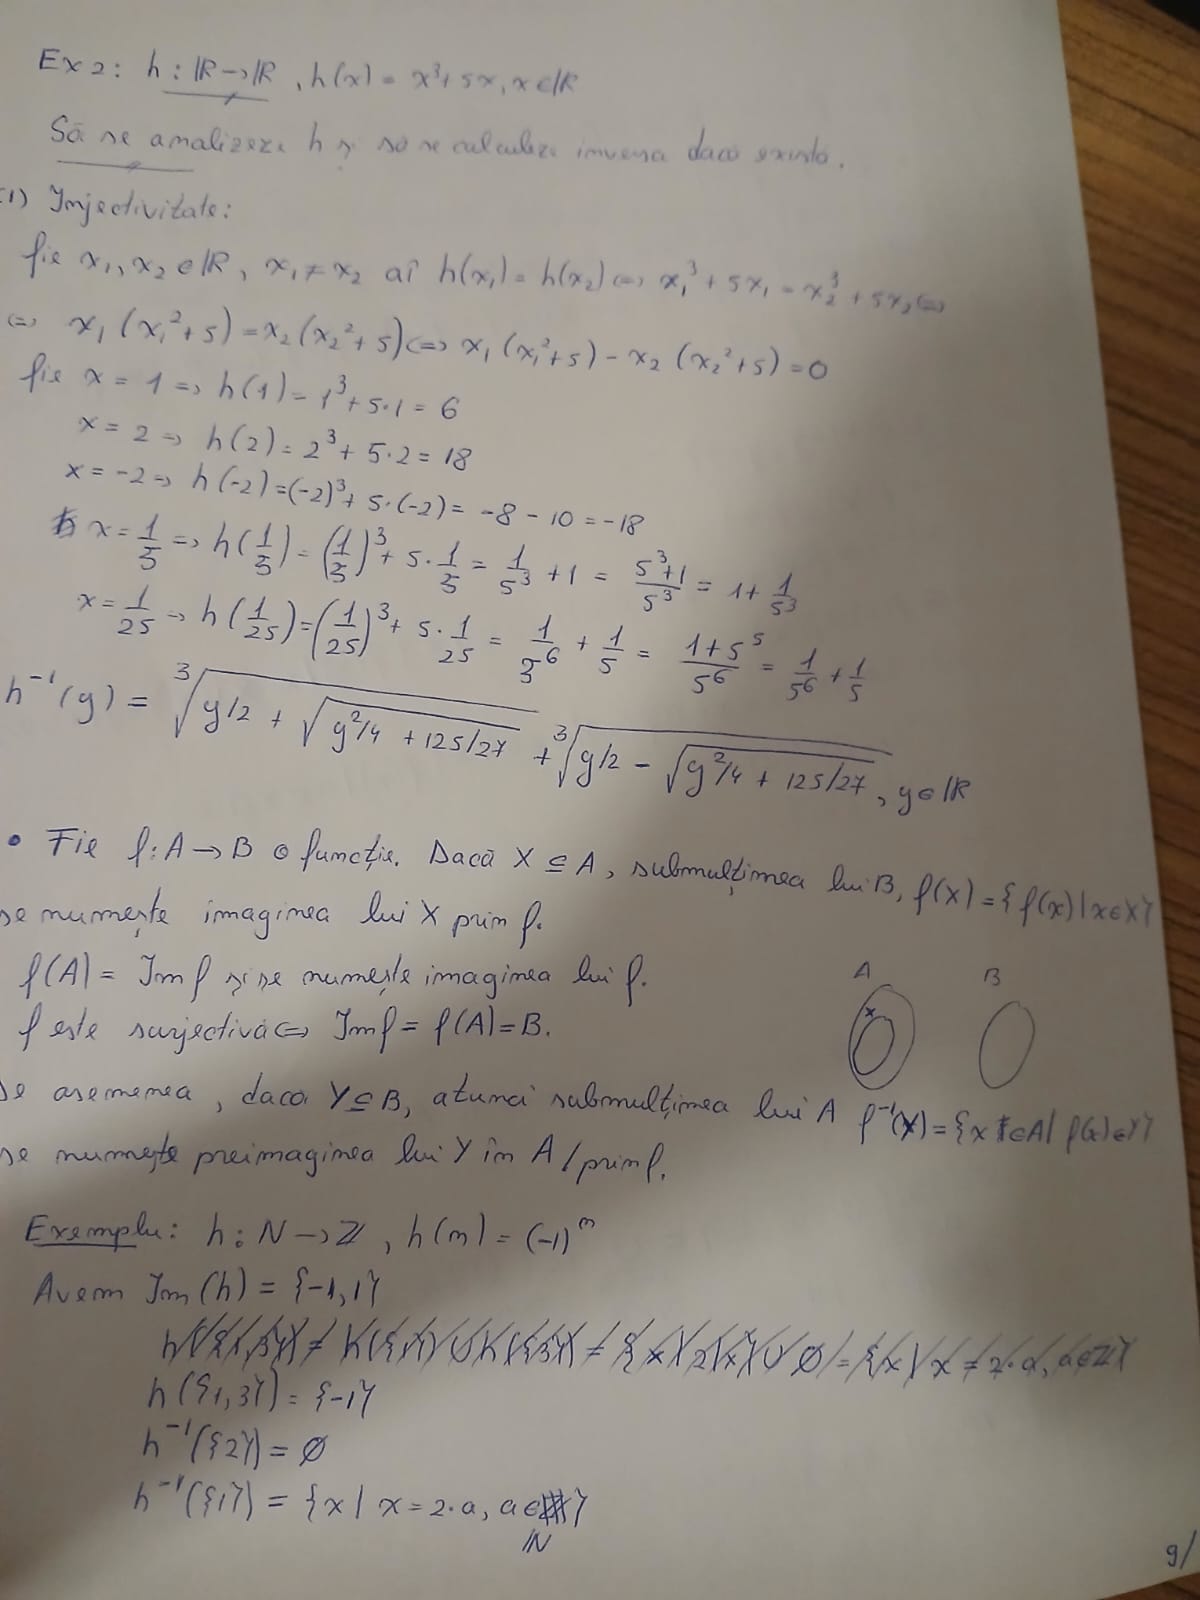 Ex 2: h : ℝ → ℝ, h(x) = x³ + 5x, x ∈ ℝ
Să se analizeze h și să se calculeze inversa dacă există.
1) Injectivitate:
fie x₁, x₂ ∈ ℝ, x₁ ≠ x₂ aî h(x₁) = h(x₂) ⇔ x₁³ + 5x₁ = x₂³ + 5x₂ ⇔
⇔ x₁(x₁² + 5) = x₂(x₂² + 5) ⇔ x₁(x₁² + 5) - x₂(x₂² + 5) = 0
fie x = 1 ⇒ h(1) = 1³ + 5·1 = 6
x = 2 ⇒ h(2) = 2³ + 5·2 = 18
x = -2 ⇒ h(-2) = (-2)³ + 5·(-2) = -8 - 10 = -18
x = 1/5 ⇒ h(1/5) = (1/5)³ + 5·1/5 = 1/5³ + 1 = (5³+1)/5³ = 1 + 1/5³
x = 1/25 ⇒ h(1/25) = (1/25)³ + 5·1/25 = 1/5⁶ + 1/5 = (1+5⁵)/5⁶ = 1/5⁶ + 1/5
h⁻¹(y) = ∛(y/2 + √(y²/4 + 125/27)) + ∛(y/2 - √(y²/4 + 125/27)), y ∈ ℝ
• Fie f: A → B o funcție. Dacă X ⊆ A, submulțimea lui B, f(X) = {f(x) | x ∈ X}
se numește imaginea lui X prin f.
f(A) = Im f și se numește imaginea lui f.
A B
X
f este surjectivă ⇔ Im f = f(A) = B.
De asemenea, dacă Y ⊆ B, atunci submulțimea lui A f⁻¹(Y) = {x ∈ A | f(x) ∈ Y}
se numește preimaginea lui Y în A / prin f.
Exemplu: h : N → ℤ, h(n) = (-1)ⁿ
Avem Im(h) = {-1, 1}
h({1, 3}) = {-1}
h⁻¹({2}) = ∅
h⁻¹({1}) = {x | x = 2·a, a ∈ ℕ}
9/